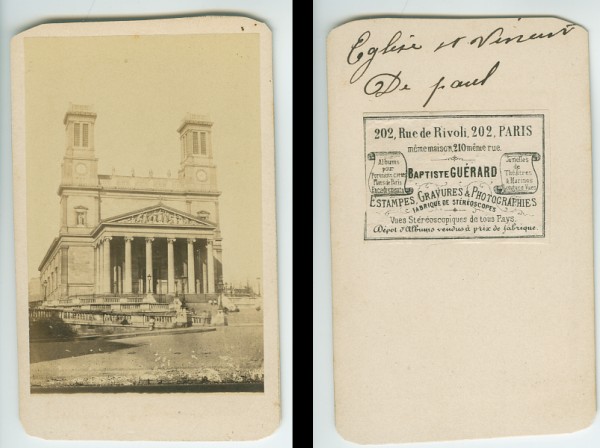 Eglise st Vincent
De paul
202, Rue de Rivoli, 202, PARIS
même maison, 210 même rue.
Albums
pour
BAPTISTE GUÉRARD
Jumelles
de
Théâtres
& Marines
ESTAMPES, GRAVURES & PHOTOGRAPHIES
FABRIQUE DE STÉRÉOSCOPES
Vues Stéréoscopiques de tous Pays.
Dépot d'Albums vendus à prix de fabrique.